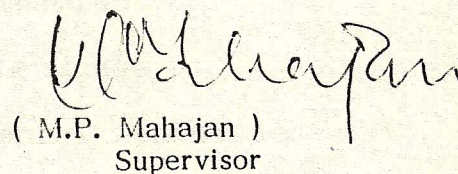 ( M.P. Mahajan )
Supervisor